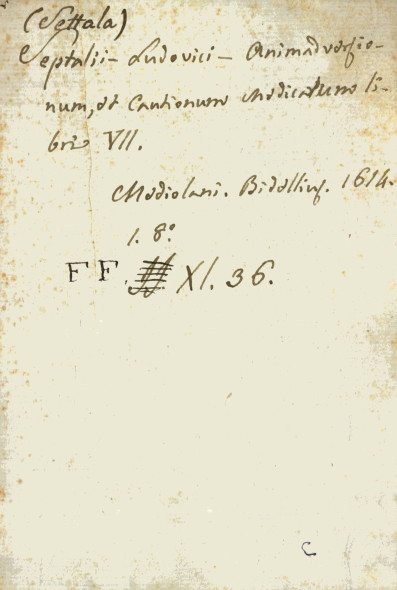 (Settala)
Septalii - Ludovici - Animadversio-
num, et Cautionum Medicarum li-
bri VII.
Mediolani. Bidellius. 1614.
1. 8°.
F F. XI. 36.
C